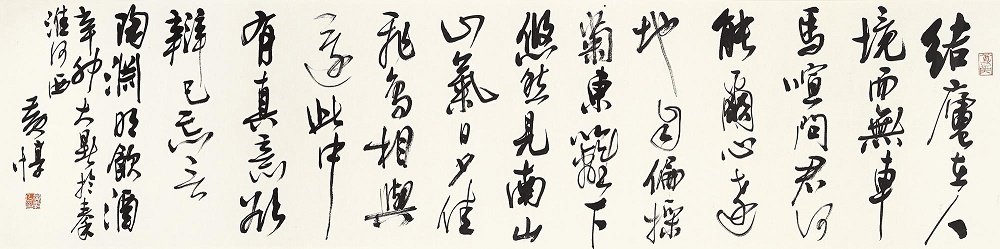 結廬在人
境而無車
馬喧問君何
能爾心遠
地自偏採
菊東籬下
悠然見南山
山氣日夕佳
飛鳥相與
還此中
有真意欲
辯已忘言
陶淵明飲酒
辛卯大暑於秦
淮河西
黃惇